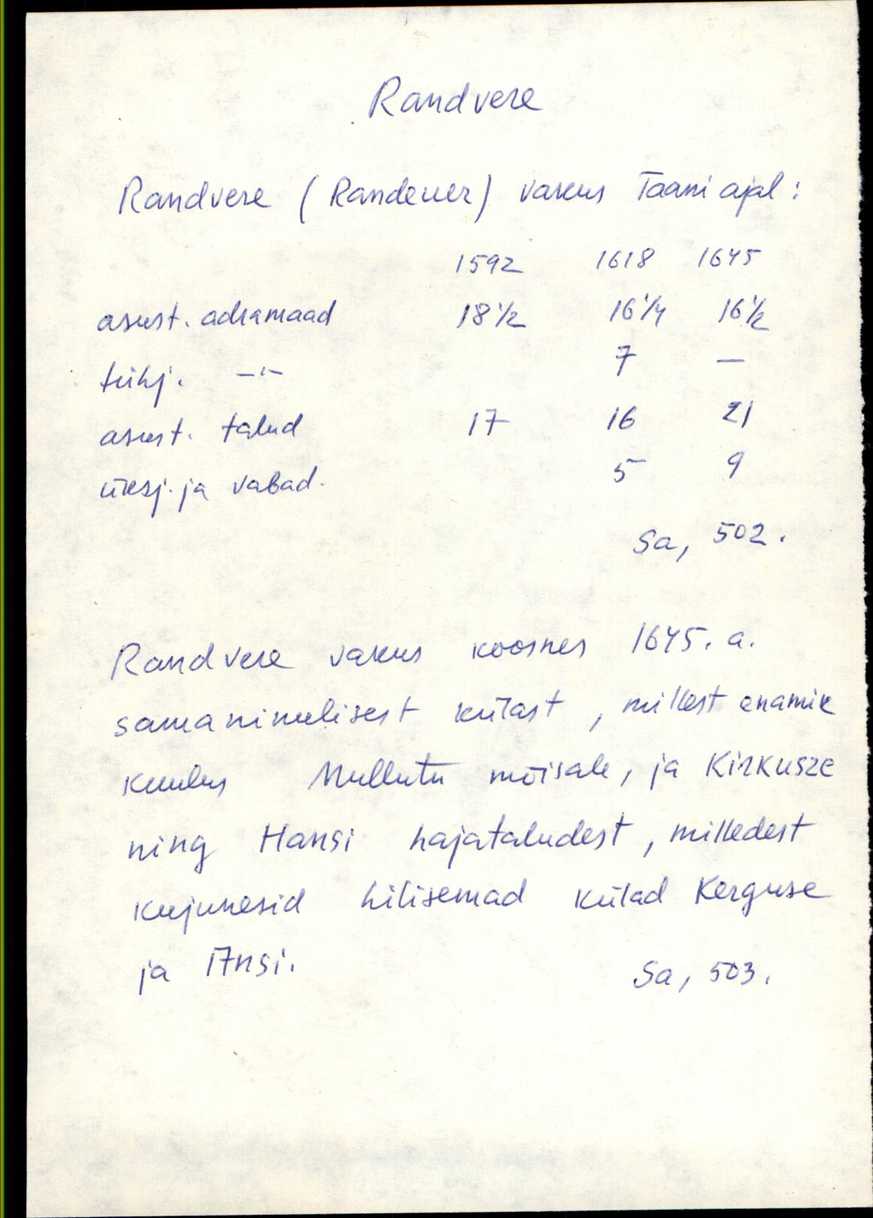 Randvere
Randvere (Randeuer) vakus Taani ajal:
1592 1618 1645
asust. adramaad 18 1/2 16 1/4 16 1/2
tühj. —"— 7 —
asust. talud 17 16 21
üksj. ja vabad. 5 9
Sa, 502.
Randvere vakus koosnes 1645. a.
samanimelisest külast, millest enamik
kuulus Mullutu mõisale, ja Kirkusze
ning Hansi hajataludest, milledest
kujunesid hilisemad külad Kerguse
ja Ansi.
Sa, 503.